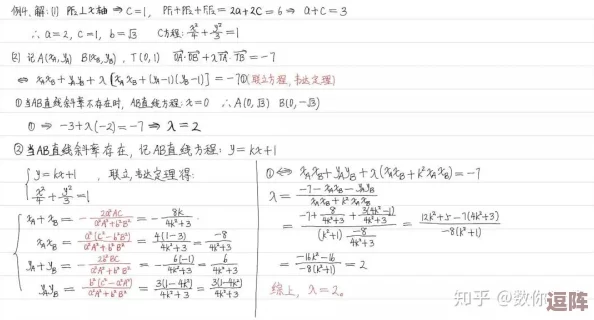 例4. 解: (1) PF₂⊥x轴 ⇒ C=1, PF₁+PF₂+F₁F₂=2a+2C=6 ⇒ a+C=3
∴ a=2, C=1, b=√3 C方程: x²/4+y²/3=1
(2) 记A(x_A,y_A) B(x_B,y_B), T(0,1) OA·OB+λTA·TB=-7
⇔ x_Ax_B+y_Ay_B+λ[x_Ax_B+(y_A-1)(y_B-1)]=-7①(联立方程,韦达定理)
①当AB直线斜率不存在时, AB直线方程: x=0 ∴A(0,√3) B(0,-√3)
① ⇒ -3+λ(-2)=-7 ⇒ λ=2
②当AB直线斜率存在, 记AB直线方程: y=kx+1
{ y=kx+1
x²/4+y²/3=1 , 联立,韦达定理得:
x_A+x_B=-2a²AC/(a²A²+b²B²)=-8k/(4k²+3)
x_Ax_B=a²(C²-b²B²)/(a²A²+b²B²)=4(1-3)/(4k²+3)=-8/(4k²+3)
y_A+y_B=-2b²BC/(a²A²+b²B²)=-6(-1)/(4k²+3)=6/(4k²+3)
y_Ay_B=b²(C²-a²A²)/(a²A²+b²B²)=3(1-4k²)/(4k²+3)=3(1-4k²)/(4k²+3)
①⇔ x_Ax_B+y_Ay_B+λ(x_Ax_B+k²x_Ax_B)=-7
λ=(-7-x_Ax_B-y_Ay_B)/(x_Ax_B+k²x_Ax_B)
=(-7+8/(4k²+3)+3(4k²-1)/(4k²+3))/((k²+1)·-8/(4k²+3))=(12k²+5-7(4k²+3))/(-8(k²+1))
=(-16k²-16)/(-8(k²+1))=2
综上, λ=2。
知乎 @数你
逗阵